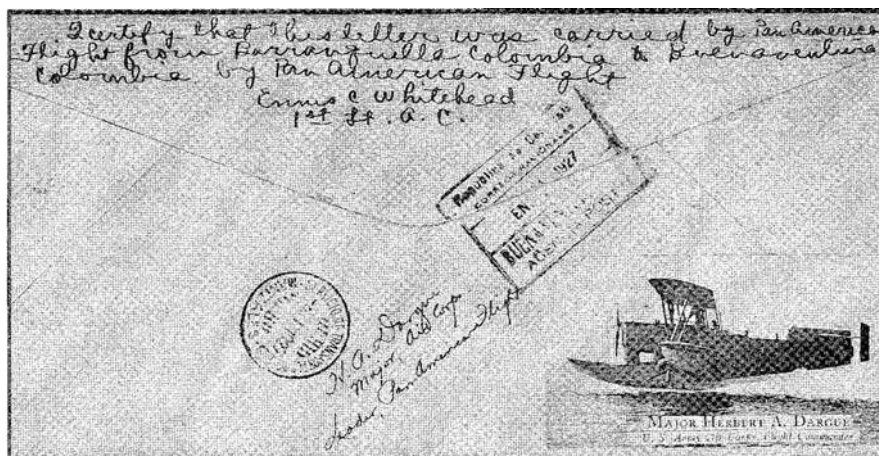 I certify that this letter was carried by Pan American
Flight from Barranquilla Colombia to Buenaventura
Colombia by Pan American Flight
Ennis C Whitehead
1st Lt. A. C.
REPUBLICA DE
CORREOS NACIONALES
EN 1927
AGENCIA POSTAL
H. A. Dargue
Major, Air Corps
Leader, Pan American Flight
MAJOR HERBERT A. DARGUE
U. S. Army Air Corps, Flight Commander